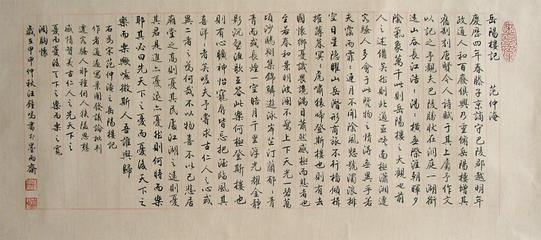 岳陽樓記 范仲淹
慶歷四年春滕子京謫守巴陵郡越明年
政通人和百廢俱興乃重修岳陽樓增其
舊制刻唐賢今人詩賦于其上屬予作文
以記之予觀夫巴陵勝狀在洞庭一湖銜
遠山吞長江浩浩湯湯橫無際涯朝暉夕
陰氣象萬千此則岳陽樓之大觀也前
人之述備矣然則北通巫峽南極瀟湘遷
客騷人多會于此覽物之情得無異乎若
夫霪雨霏霏連月不開陰風怒號濁浪排
空日星隱曜山岳潛形商旅不行檣傾楫
摧薄暮冥冥虎嘯猿啼登斯樓也則有去
國懷鄉憂讒畏譏滿目蕭然感極而悲者也
至若春和景明波瀾不驚上下天光一碧萬
頃沙鷗翔集錦鱗游泳岸芷汀蘭郁郁青
青而或長煙一空皓月千里浮光耀金靜
影沉璧漁歌互答此樂何極登斯樓也
則有心曠神怡寵辱偕忘把酒臨風其
喜洋洋者矣嗟夫予嘗求古仁人之心或
異二者之為何哉不以物喜不以己悲居
廟堂之高則憂其民處江湖之遠則憂
其君是進亦憂退亦憂然則何時而樂
耶其必曰先天下之憂而憂後天下之
樂而樂歟噫微斯人吾誰與歸
右為宋范仲淹之岳陽樓記